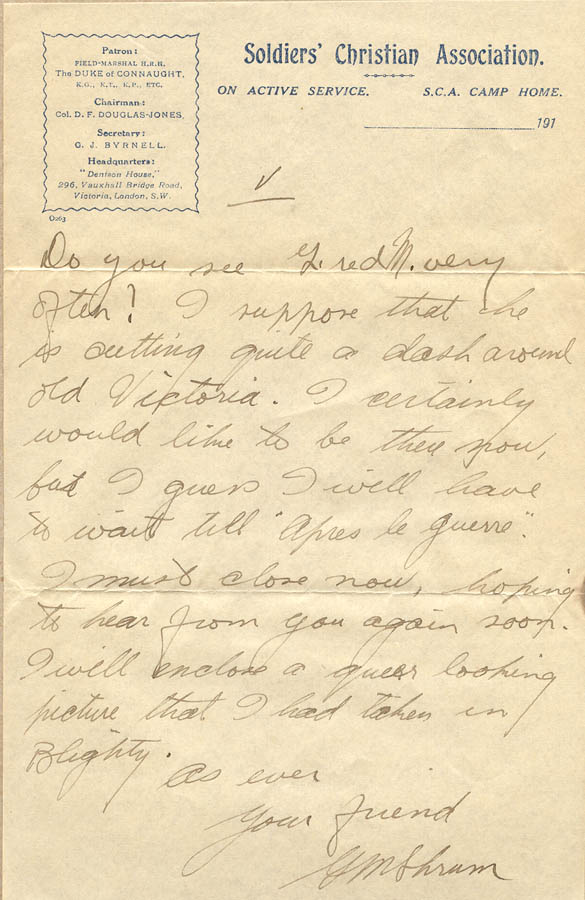 Patron:
FIELD-MARSHAL H.R.H.
The DUKE of CONNAUGHT,
K.G., K.T., K.P., ETC.
Chairman:
Col. D. F. DOUGLAS-JONES,
Secretary:
G. J. BYRNELL.
Headquarters:
"Denison House,"
296, Vauxhall Bridge Road,
Victoria, London, S.W.
O263
Soldiers' Christian Association.
ON ACTIVE SERVICE. S.C.A. CAMP HOME.
191
V
Do you see Fred M. very
often? I suppose that he
is cutting quite a dash around
old Victoria. I certainly
would like to be there now,
but I guess I will have
to wait till "Apres le guerre".
I must close now, hoping
to hear from you again soon.
I will enclose a queer looking
picture that I had taken in
Blighty.
As ever
Your friend
G M Shrum